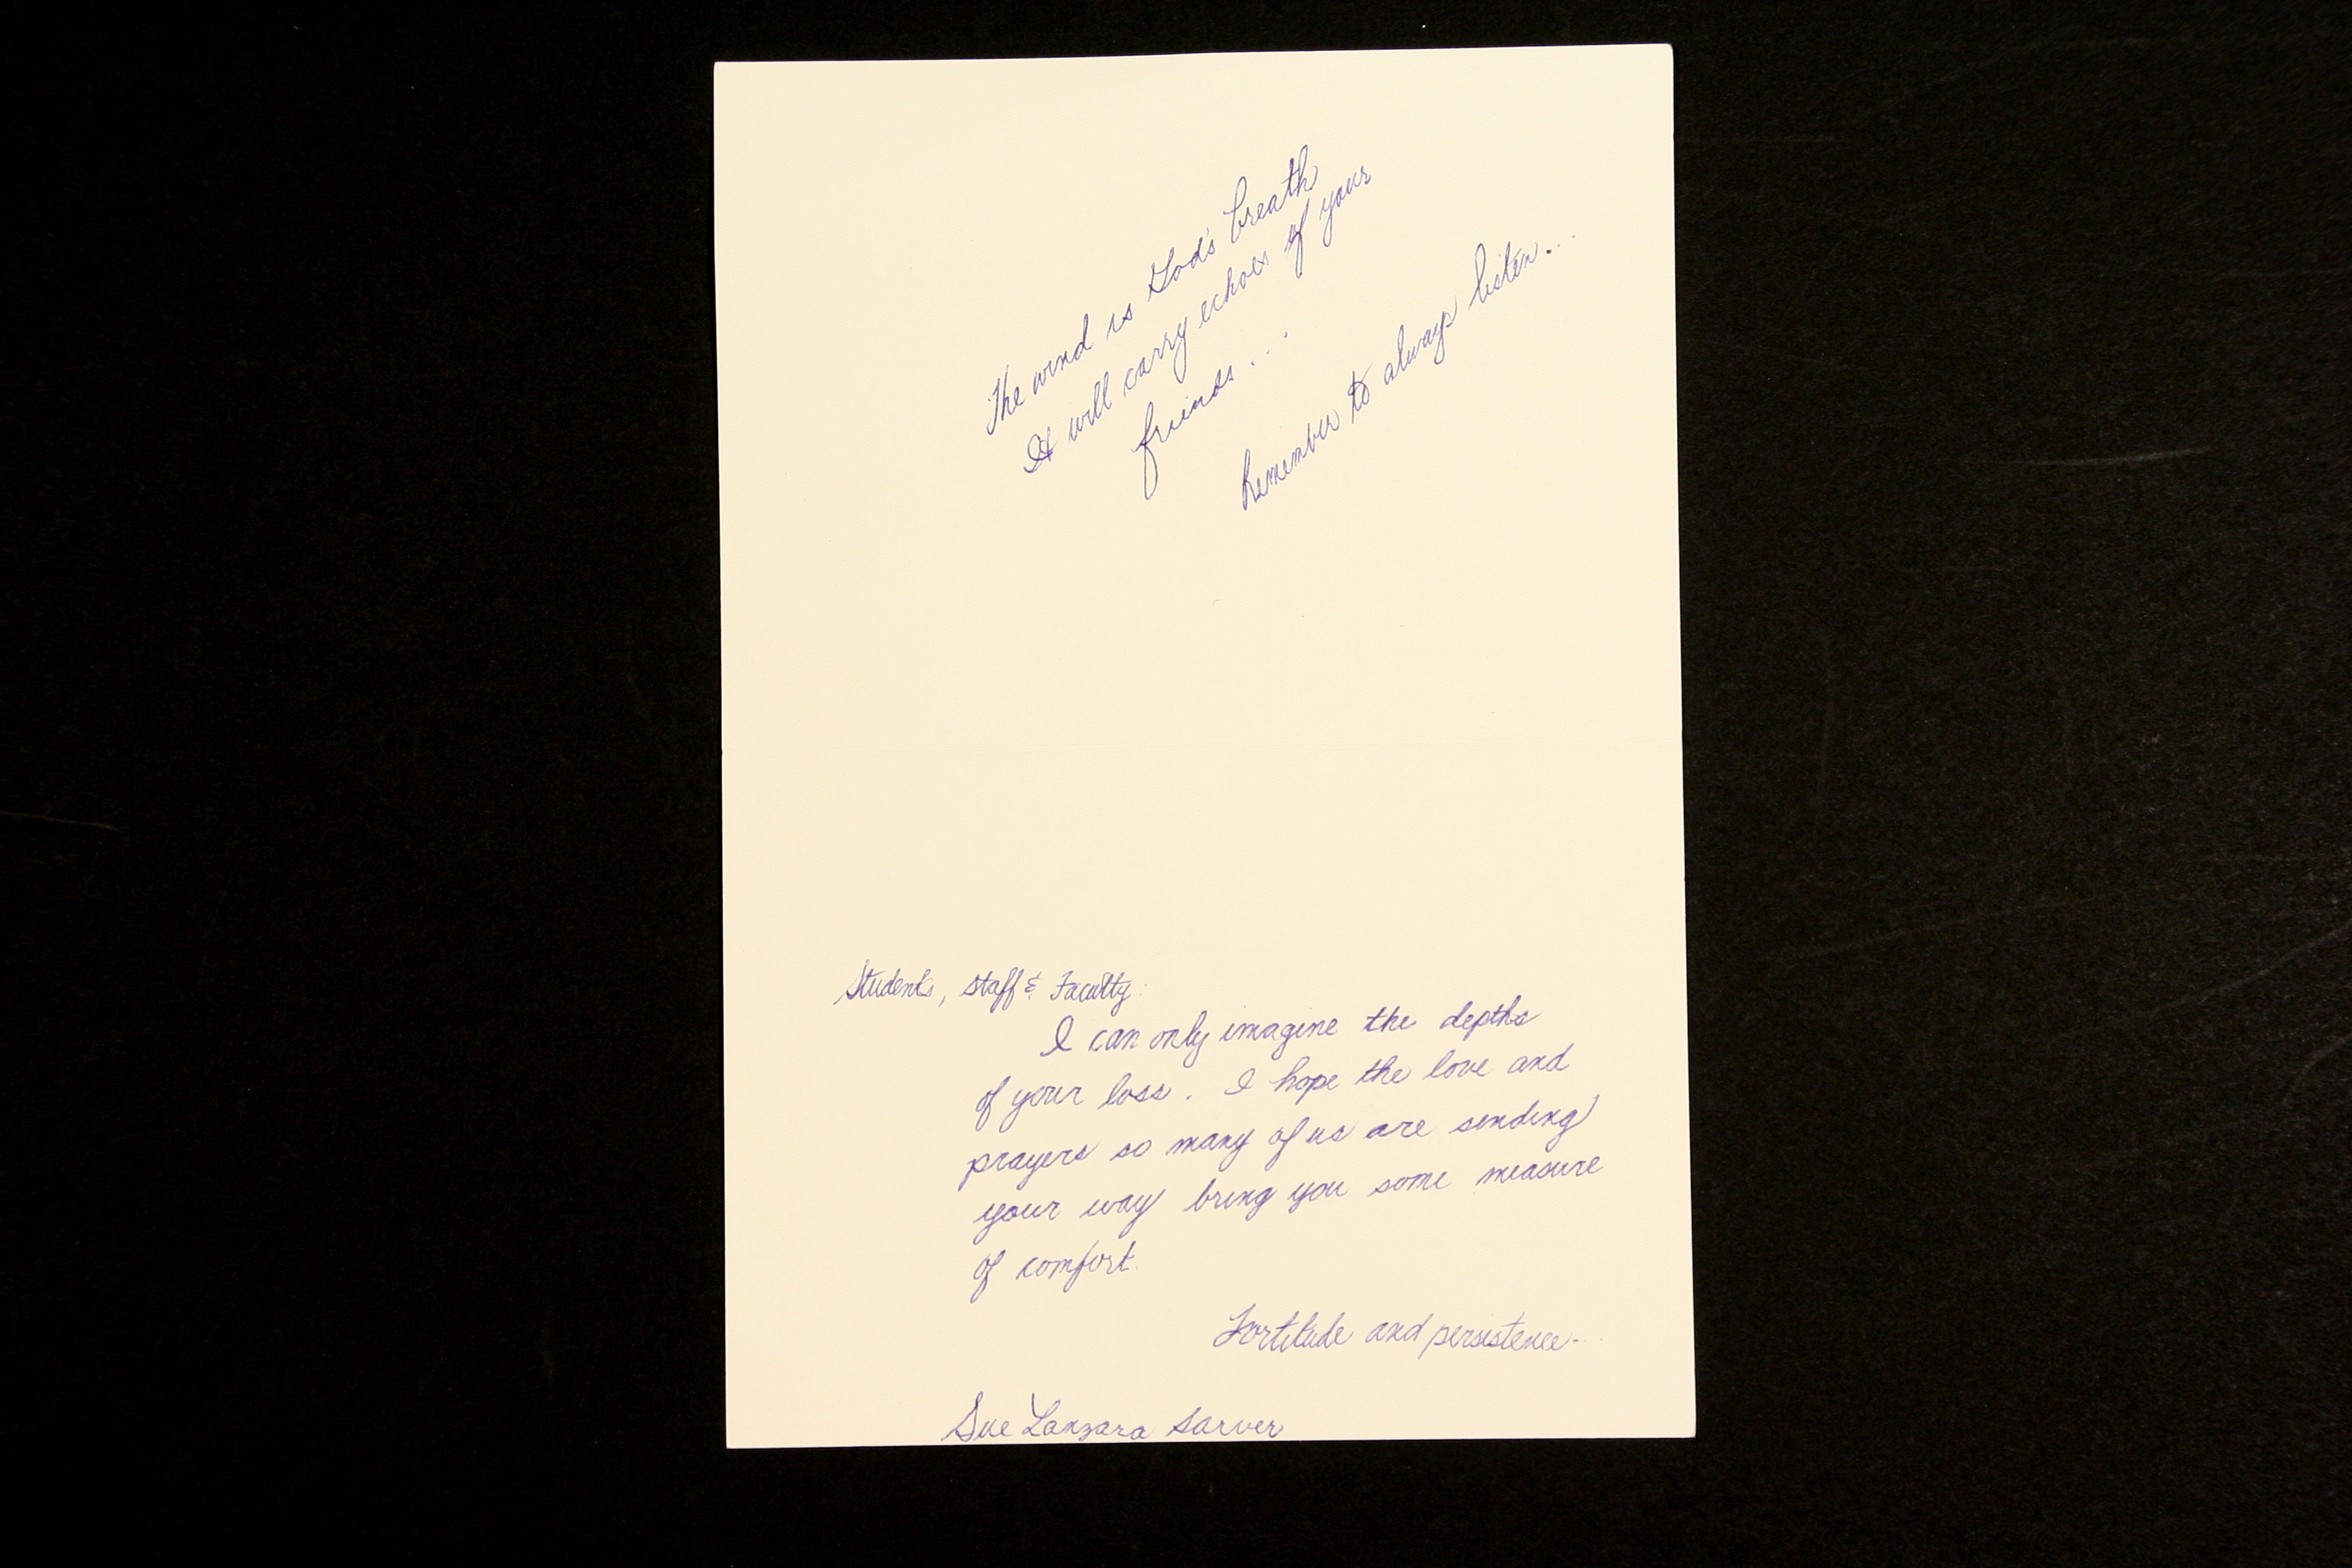 The wind is God's breath
It will carry echoes of your
friends...
Remember to always listen...
Students, Staff & Faculty:
I can only imagine the depths
of your loss. I hope the love and
prayers so many of us are sending
your way bring you some measure
of comfort.
Fortitude and persistence...
Sue Lanzara Sarver